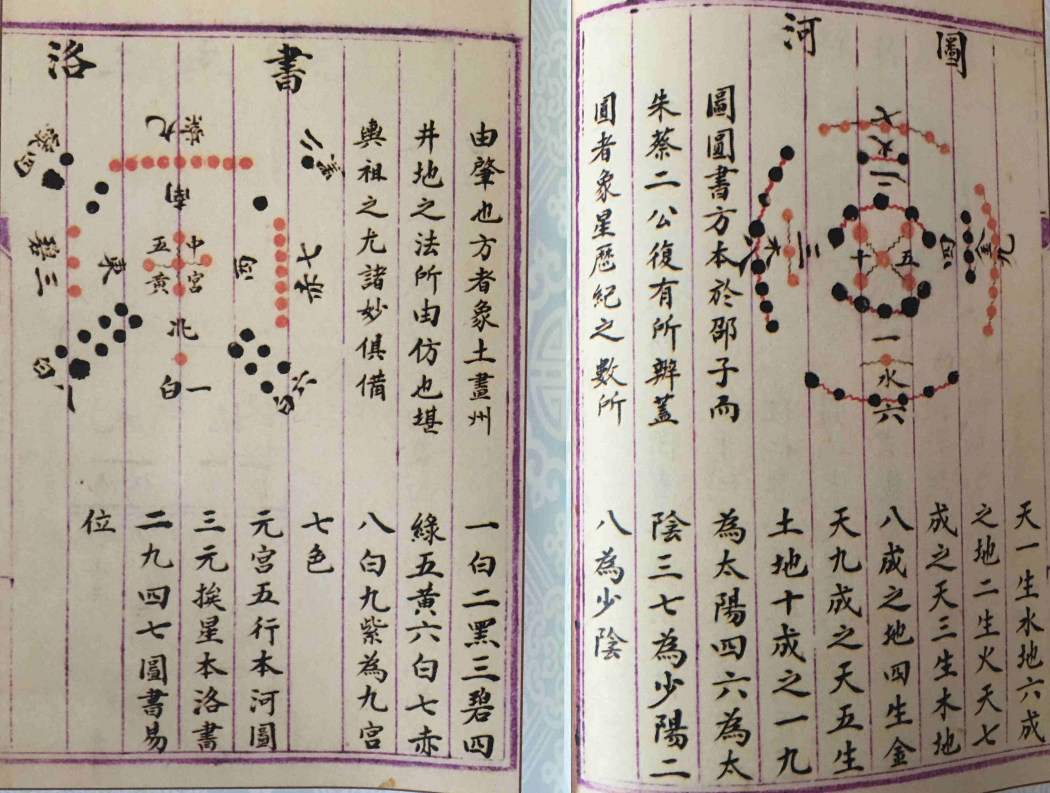 河圖
七
火
二
九
四
三
木
十五
一
水
六
圖圓書方本於邵子而
朱蔡二公復有所辨蓋
圓者象星歷紀之數所
天一生水地六成
之地二生火天七
成之天三生木地
八成之地四生金
天九成之天五生
土地十成之一九
為太陽四六為太
陰三七為少陽二
八為少陰
洛書
九紫
南
二黑
四綠
三碧
東
中宮
五黃
西
七赤
北
一白
八白
六白
由肇也方者象土畫州
井地之法所由仿也堪
輿祖之尤諸妙俱備
一白二黑三碧四
綠五黃六白七赤
八白九紫為九宮
七色
元宮五行本河圖
三元挨星本洛書
二九四七圖書易
位